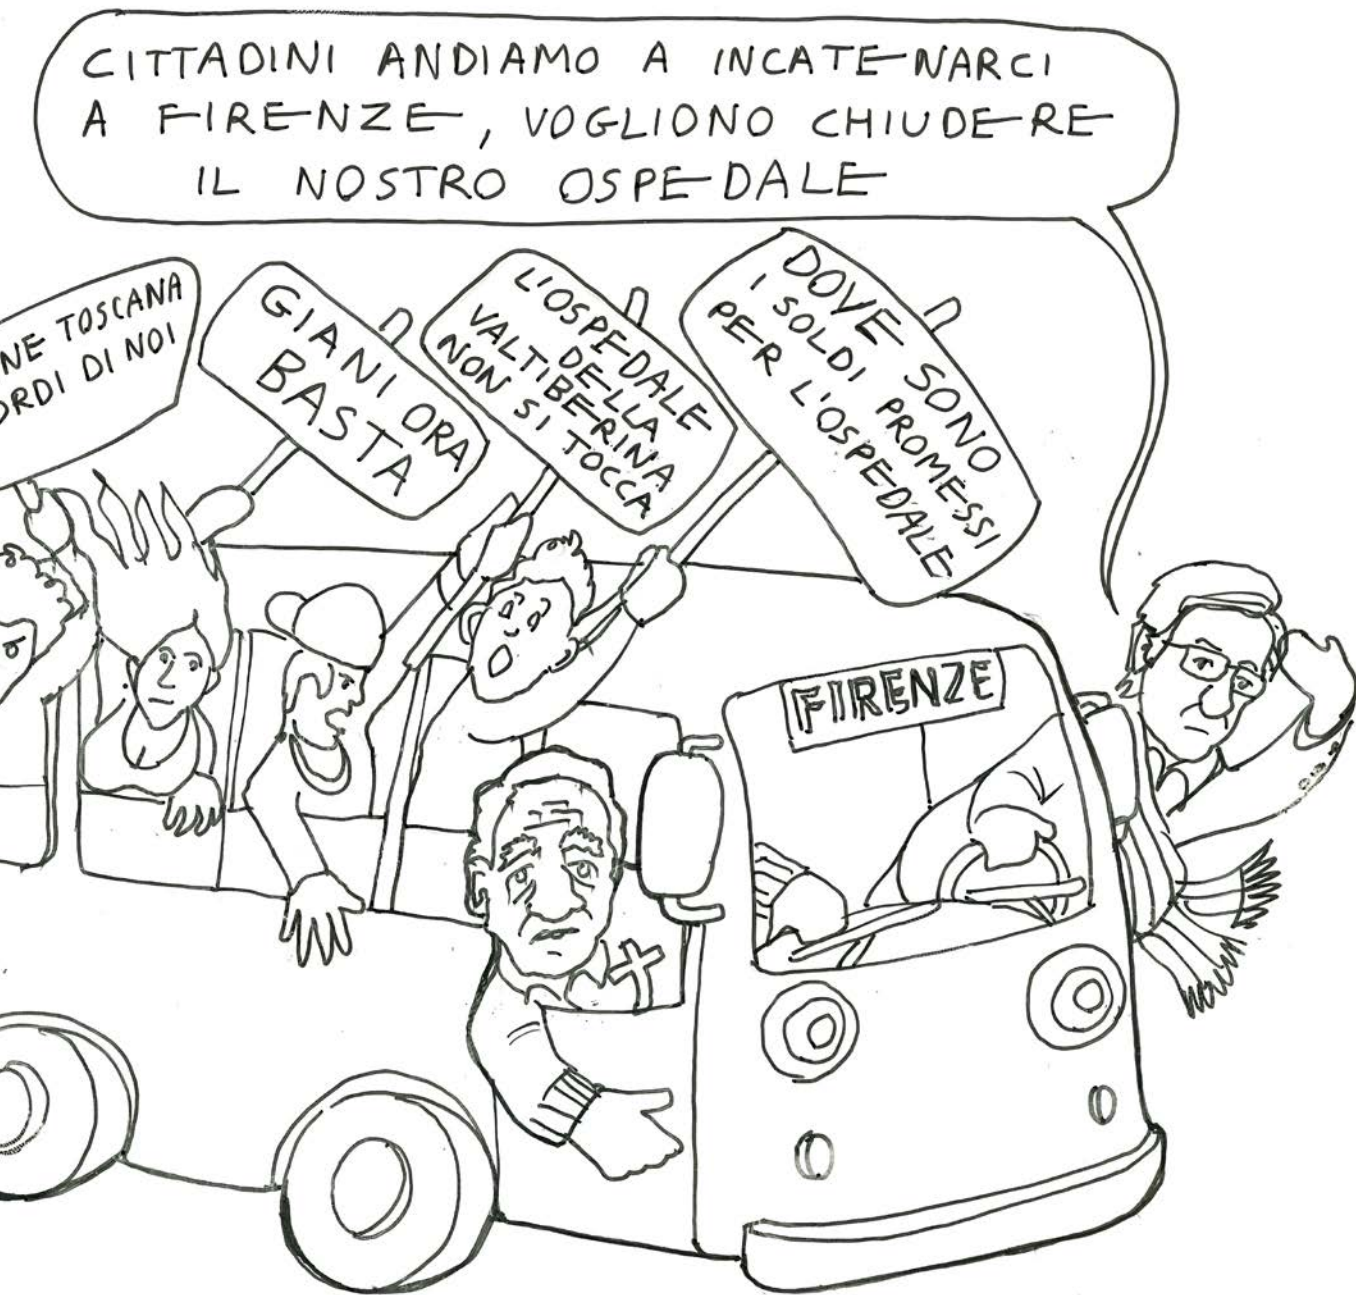 CITTADINI ANDIAMO A INCATENARCI
A FIRENZE, VOGLIONO CHIUDERE
IL NOSTRO OSPEDALE
NE TOSCANA
ORDI DI NOI
GIANI ORA
BASTA
L'OSPEDALE
DELLA
VALTIBERINA
NON SI TOCCA
DOVE SONO
I SOLDI PROMESSI
PER L'OSPEDALE
FIRENZE